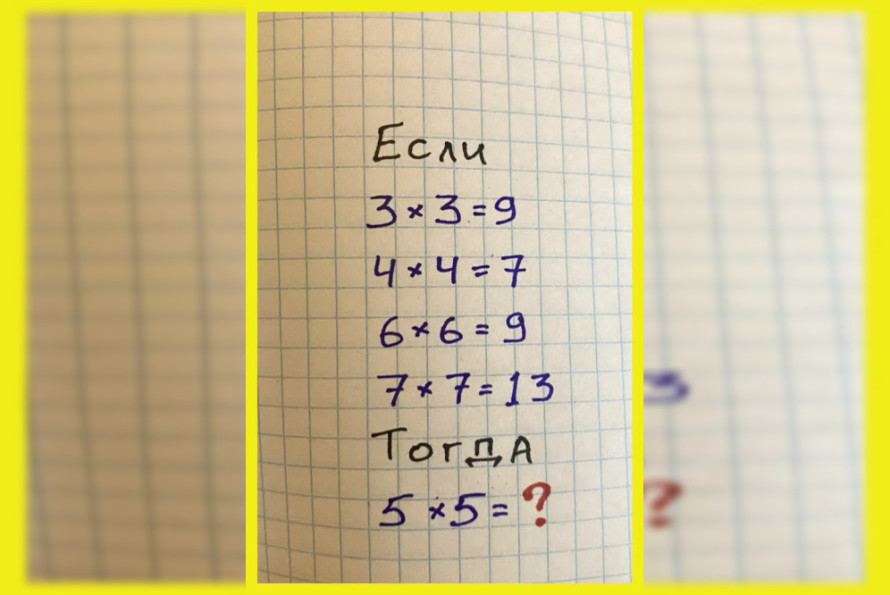 Если
3×3=9
4×4=7
6×6=9
7×7=13
Тогда
5×5=?
3
?